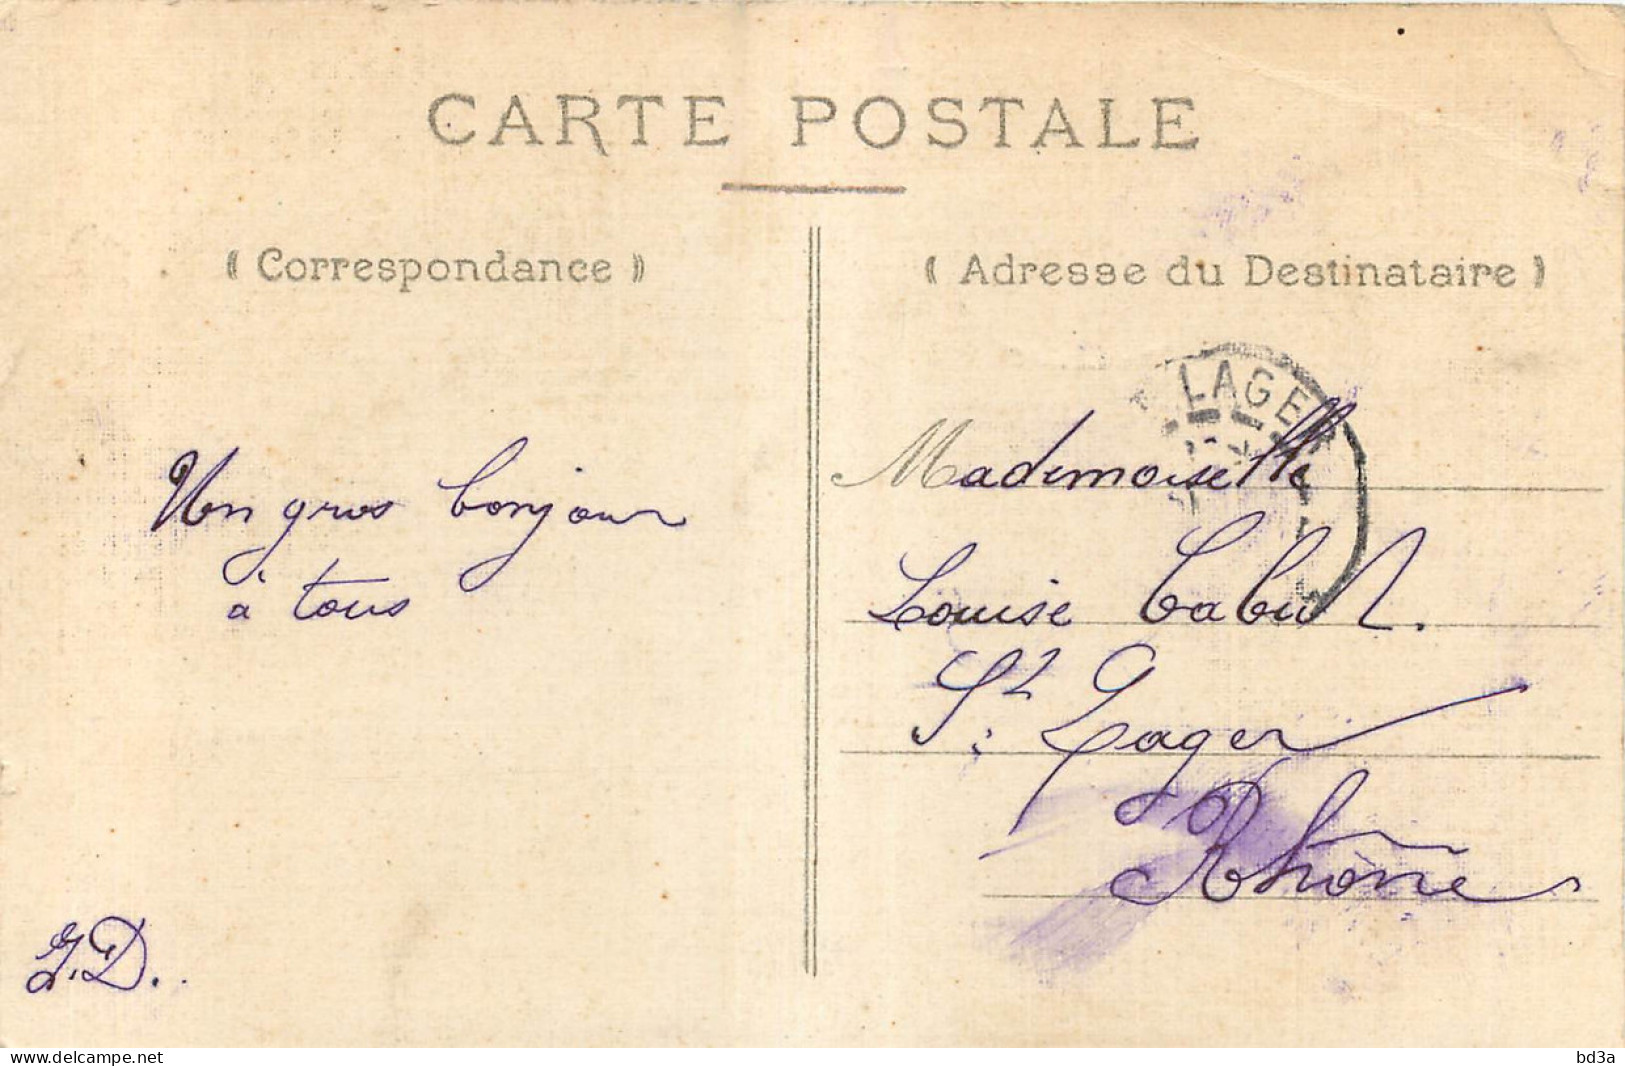 CARTE POSTALE
( Correspondance )
( Adresse du Destinataire )
LAGER
Un gros bonjour
à tous
Mademoiselle
Louise Cabut.
St. Lager
Rhône
J.D.
www.delcampe.net
bd3a